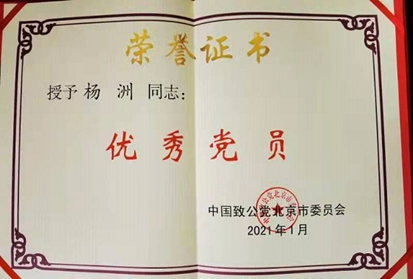 荣誉证书
授予杨 洲 同志：
优秀党员
中国致公党北京市委员会
2021年1月